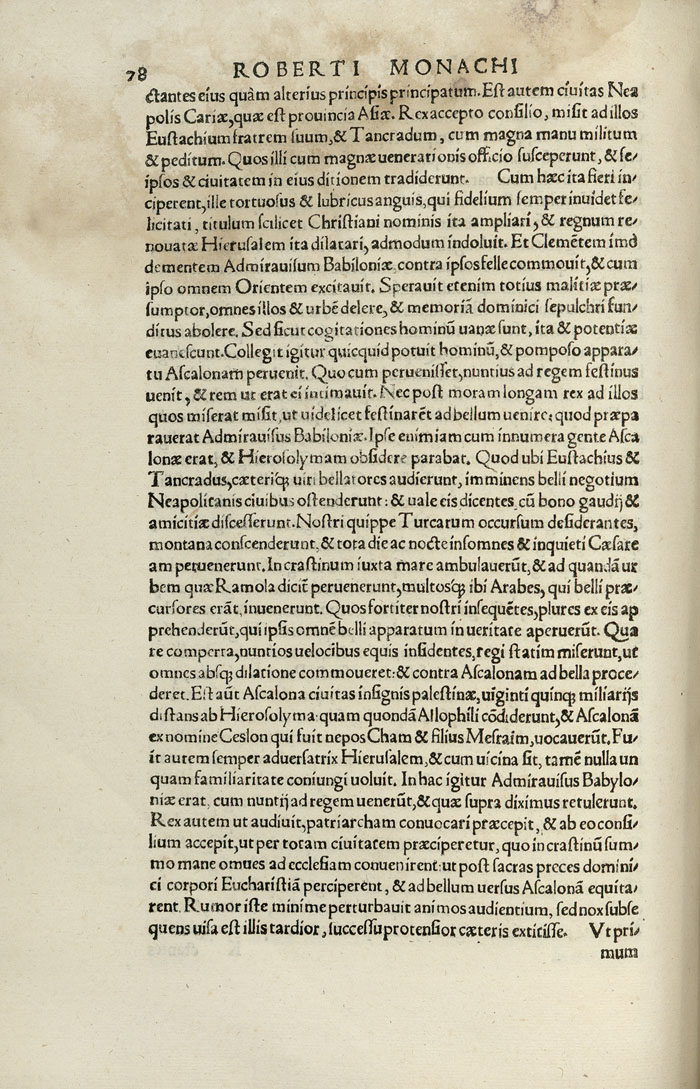 78 ROBERTI MONACHI
ctantes eius quàm alterius principis principatum. Est autem ciuitas Nea
polis Cariæ, quæ est prouincia Asiæ. Rex accepto consilio, misit ad illos
Eustachium fratrem suum, & Tancradum, cum magna manu militum
& peditum. Quos illi cum magnæ uenerationis officio susceperunt, & se/
ipsos & ciuitatem in eius ditionem tradiderunt. Cum hæc ita fieri in/
ciperent, ille tortuosus & lubricus anguis, qui fidelium semper inuidet fe/
licitati, titulum scilicet Christiani nominis ita ampliari, & regnum re/
nouatæ Hierusalem ita dilatari, admodum indoluit. Et Clemẽtem imò
dementem Admirauisum Babiloniæ contra ipsos felle commouit, & cum
ipso omnem Orientem excitauit. Sperauit etenim totius malitiæ præ/
sumptor, omnes illos & urbẽ delere, & memoriã dominici sepulchri fun/
ditus abolere. Sed sicut cogitationes hominũ uanæ sunt, ita & potentiæ
euanescunt. Collegit igitur quicquid potuit hominũ, & pomposo appara/
tu Ascalonam peruenit. Quo cum peruenisset, nuntius ad regem festinus
uenit, & rem ut erat ei intimauit. Nec post moram longam rex ad illos
quos miserat misit, ut uidelicet festinarẽt ad bellum uenire: quod præpa
rauerat Admirauisus Babiloniæ. Ipse enim iam cum innumera gente Asca
lonæ erat, & Hierosolymam obsidere parabat. Quod ubi Eustachius &
Tancradus, cæteriq́; uiri bellatores audierunt, imminens belli negotium
Neapolitanis ciuibus ostenderunt: & uale eis dicentes, cũ bono gaudij &
amicitiæ discesserunt. Nostri quippe Turcarum occursum desiderantes,
montana conscenderunt, & tota die ac nocte insomnes & inquieti Cæsare
am peruenerunt. In crastinum iuxta mare ambulauerũt, & ad quandã ur
bem quæ Ramola dicit̃ peruenerunt, multosq́; ibi Arabes, qui belli præ/
cursores erãt, inuenerunt. Quos fortiter nostri insequẽtes, plures ex eis ap
prehenderũt, qui ipsis omnẽ belli apparatum in ueritate aperuerũt. Qua
re comperta, nuntios uelocibus equis insidentes, regi statim miserunt, ut
omnes absq; dilatione commoueret: & contra Ascalonam ad bella proce/
deret. Est aũt Ascalona ciuitas insignis palestinæ, uiginti quinq; miliarijs
distans ab Hierosolyma: quam quondã Allophili cõdiderunt, & Ascalonã
ex nomine Ceslon qui fuit nepos Cham & filius Mesraim, uocauerũt. Fu/
it autem semper aduersatrix Hierusalem, & cum uicina sit, tamẽ nulla un
quam familiaritate coniungi uoluit. In hac igitur Admirauisus Babylo/
niæ erat, cum nuntij ad regem uenerũt, & quæ supra diximus retulerunt.
Rex autem ut audiuit, patriarcham conuocari præcepit, & ab eo consi/
lium accepit, ut per totam ciuitatem præciperetur, quo in crastinũ sum/
mo mane omues ad ecclesiam conuenirent: ut post sacras preces domini/
ci corpori Eucharistiã perciperent, & ad bellum uersus Ascalonã equita/
rent. Rumor iste minime perturbauit animos audientium, sed nox subse
quens uisa est illis tardior, successu protensior cæteris extitisse. Vt pri/
mum